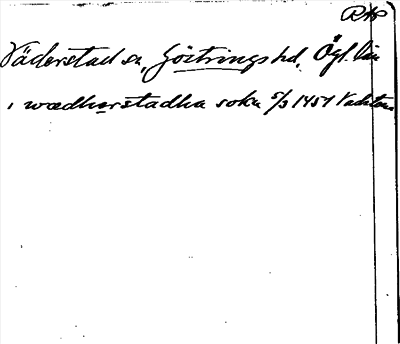 RAP
Väderstad sn, Göstrings hd, Ögl. län
i wædhorstadha sokn 5/3 1454 Vadstena